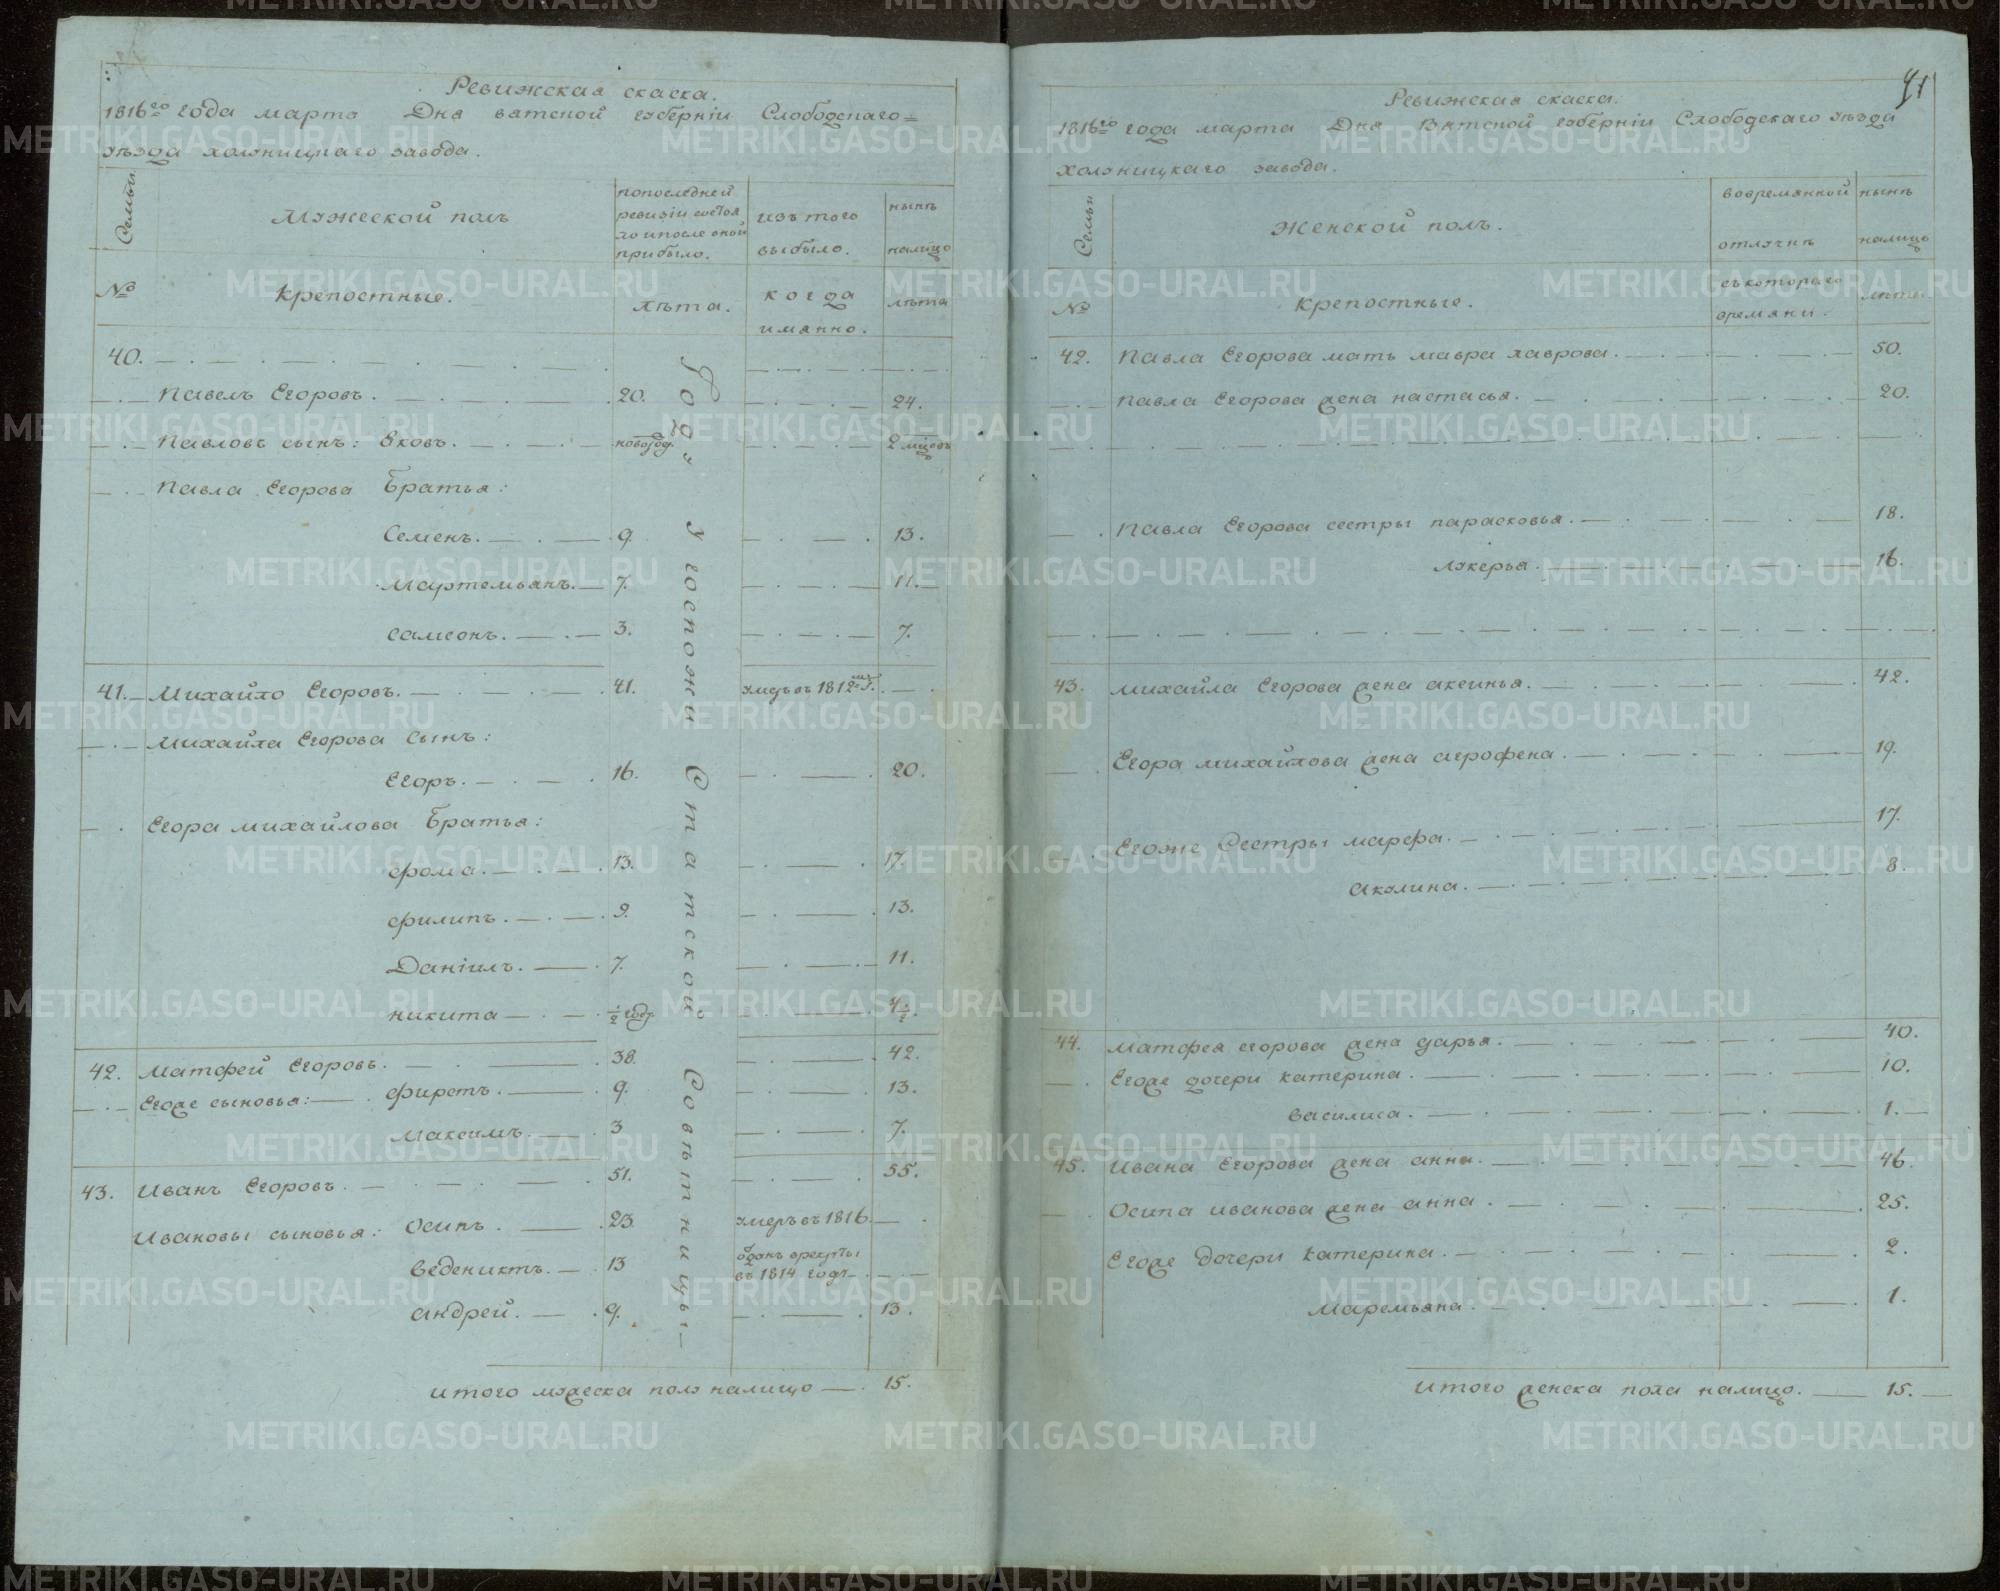 Ревижская скаска.
1816го года марта Дня вятской губерніи Слободскаго=
уѣзда холуницкаго завода.
Семьи.
Мужеской полъ
попоследней
ревизіи состоя
ло ипосле оной
прибыло.
изъ того
выбыло.
нынѣ
налицо
№
крепостные.
лѣта.
когда
имянно.
лѣта
40.
Павелъ Егоровъ. 20. 24.
Павловъ сынъ: Яковъ. новород. 2 мцовъ
Павла Егорова Братья:
Семенъ. 9. 13.
Мартемьянъ. 7. 11.
самсонъ. 3. 7.
41. Михайло Егоровъ. 41. умеръ въ 1812мъ г.
Михайла Егорова Сынъ:
Егоръ. 16. 20.
Егора михайлова Братья:
фома. 13. 17.
филипъ. 9. 13.
Даніилъ. 7. 11.
никита ½ году 4½.
42. матфей Егоровъ. 38. 42.
Егоже сыновья: фирстъ. 9. 13.
максимъ. 3 7.
43. Иванъ Егоровъ. 51. 55.
Ивановы сыновья: Осипъ. 23 умеръ въ 1816.
веденихтъ. 13 отданъ врекруты
въ 1814 годѣ
андрей. 9. 13.
Итого мужеска полу налицо 15.
У госпожи Статской Совѣтницы
41
Ревижская скаска.
1816го года марта Дня Вятской губерніи Слободскаго уѣзда
холуницкаго завода.
Семьи
Женской полъ.
вовремянной
отлучкѣ
нынѣ
налицо
№
крепостные.
съкотораго
времяни.
лѣта.
42. Павла Егорова мать мавра лаврова. 50.
Павла Егорова жена настасья. 20.
Павла Егорова сестры парасковья. 18.
лукерья. 16.
43. михайла Егорова жена аксинья. 42.
Егора михайлова жена агрофена. 19.
Егоже Сестры марфа. 17.
акулина. 8.
44. матфея егорова жена дарья. 40.
Егоже дочери катерина. 10.
василиса. 1.
45. Ивана Егорова жена анна. 46.
Осипа иванова жена анна. 25.
Егоже дочери катерина. 2.
маремьяна. 1.
Итого женска пола налицо. 15.
METRIKI.GASO-URAL.RU